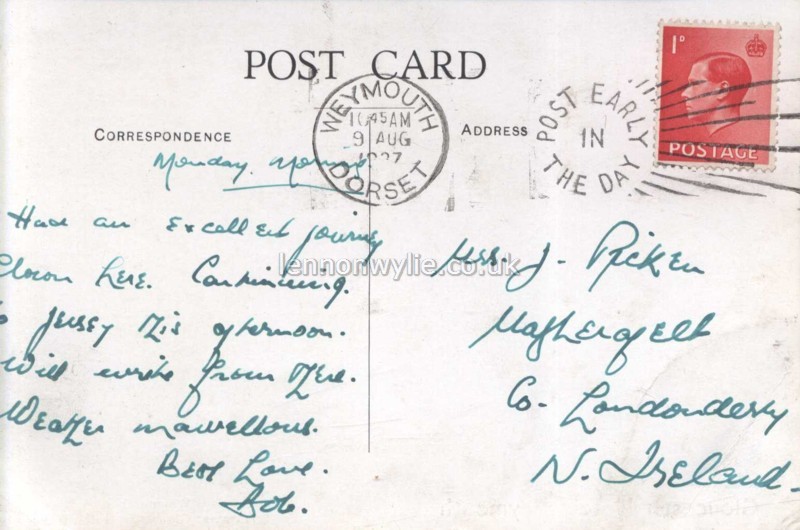 POST CARD
CORRESPONDENCE
ADDRESS
WEYMOUTH
10 45 AM
9 AUG
1937
DORSET
POST EARLY
IN
THE DAY
1D
POSTAGE
Monday Morning
Had an excellent journey
down here. Continuing
to Jersey this afternoon.
Will write from there.
Weather marvellous.
Best Love.
Bob.
J.
Magherafelt
Co. Londonderry
N. Ireland
lennonwylie.co.uk